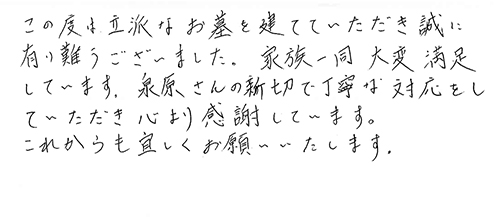 この度は立派なお墓を建てていただき誠に
有り難うございました。家族一同大変満足
しています。泉原さんの新切で丁寧な対応をし
ていただき心より感謝しています。
これからも宜しくお願いいたします.